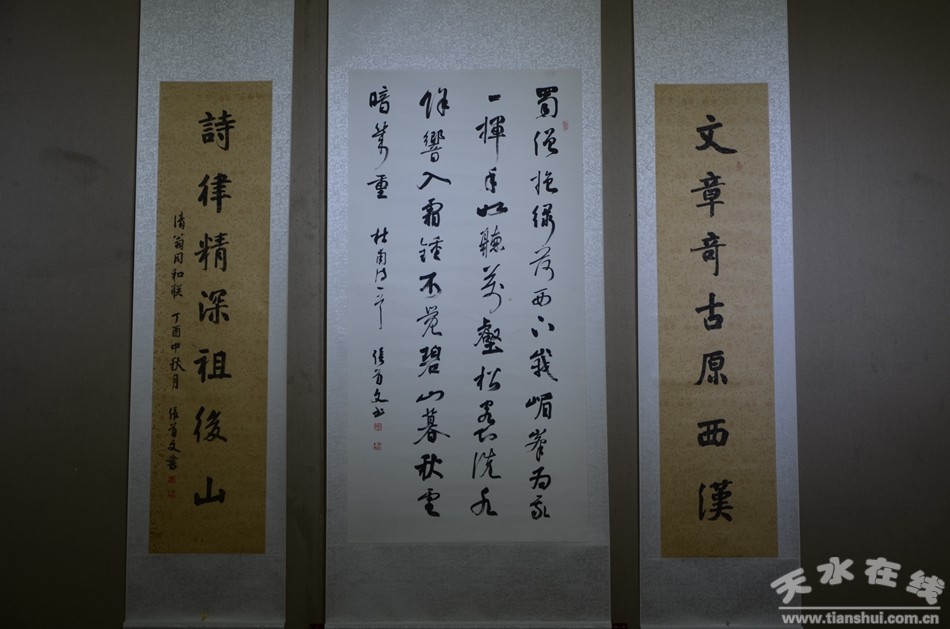 文章奇古原西漢
蜀僧抱綠西下峨嵋峯為我
一揮手如聽萬壑松客心洗水
餘響入霜鍾不覺碧山暮秋雲
暗幾重 杜甫詩一首 張文書
詩律精深祖後山
清翁同和联 丁酉中秋月 張文書
天水在线
www.tianshui.com.cn